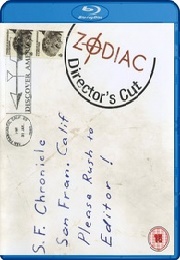 ZODIAC
Director's Cut
DISCOVER AMERICA
S.F. Chronicle
San Fran. Calif
Please Rush to
Editor!
15